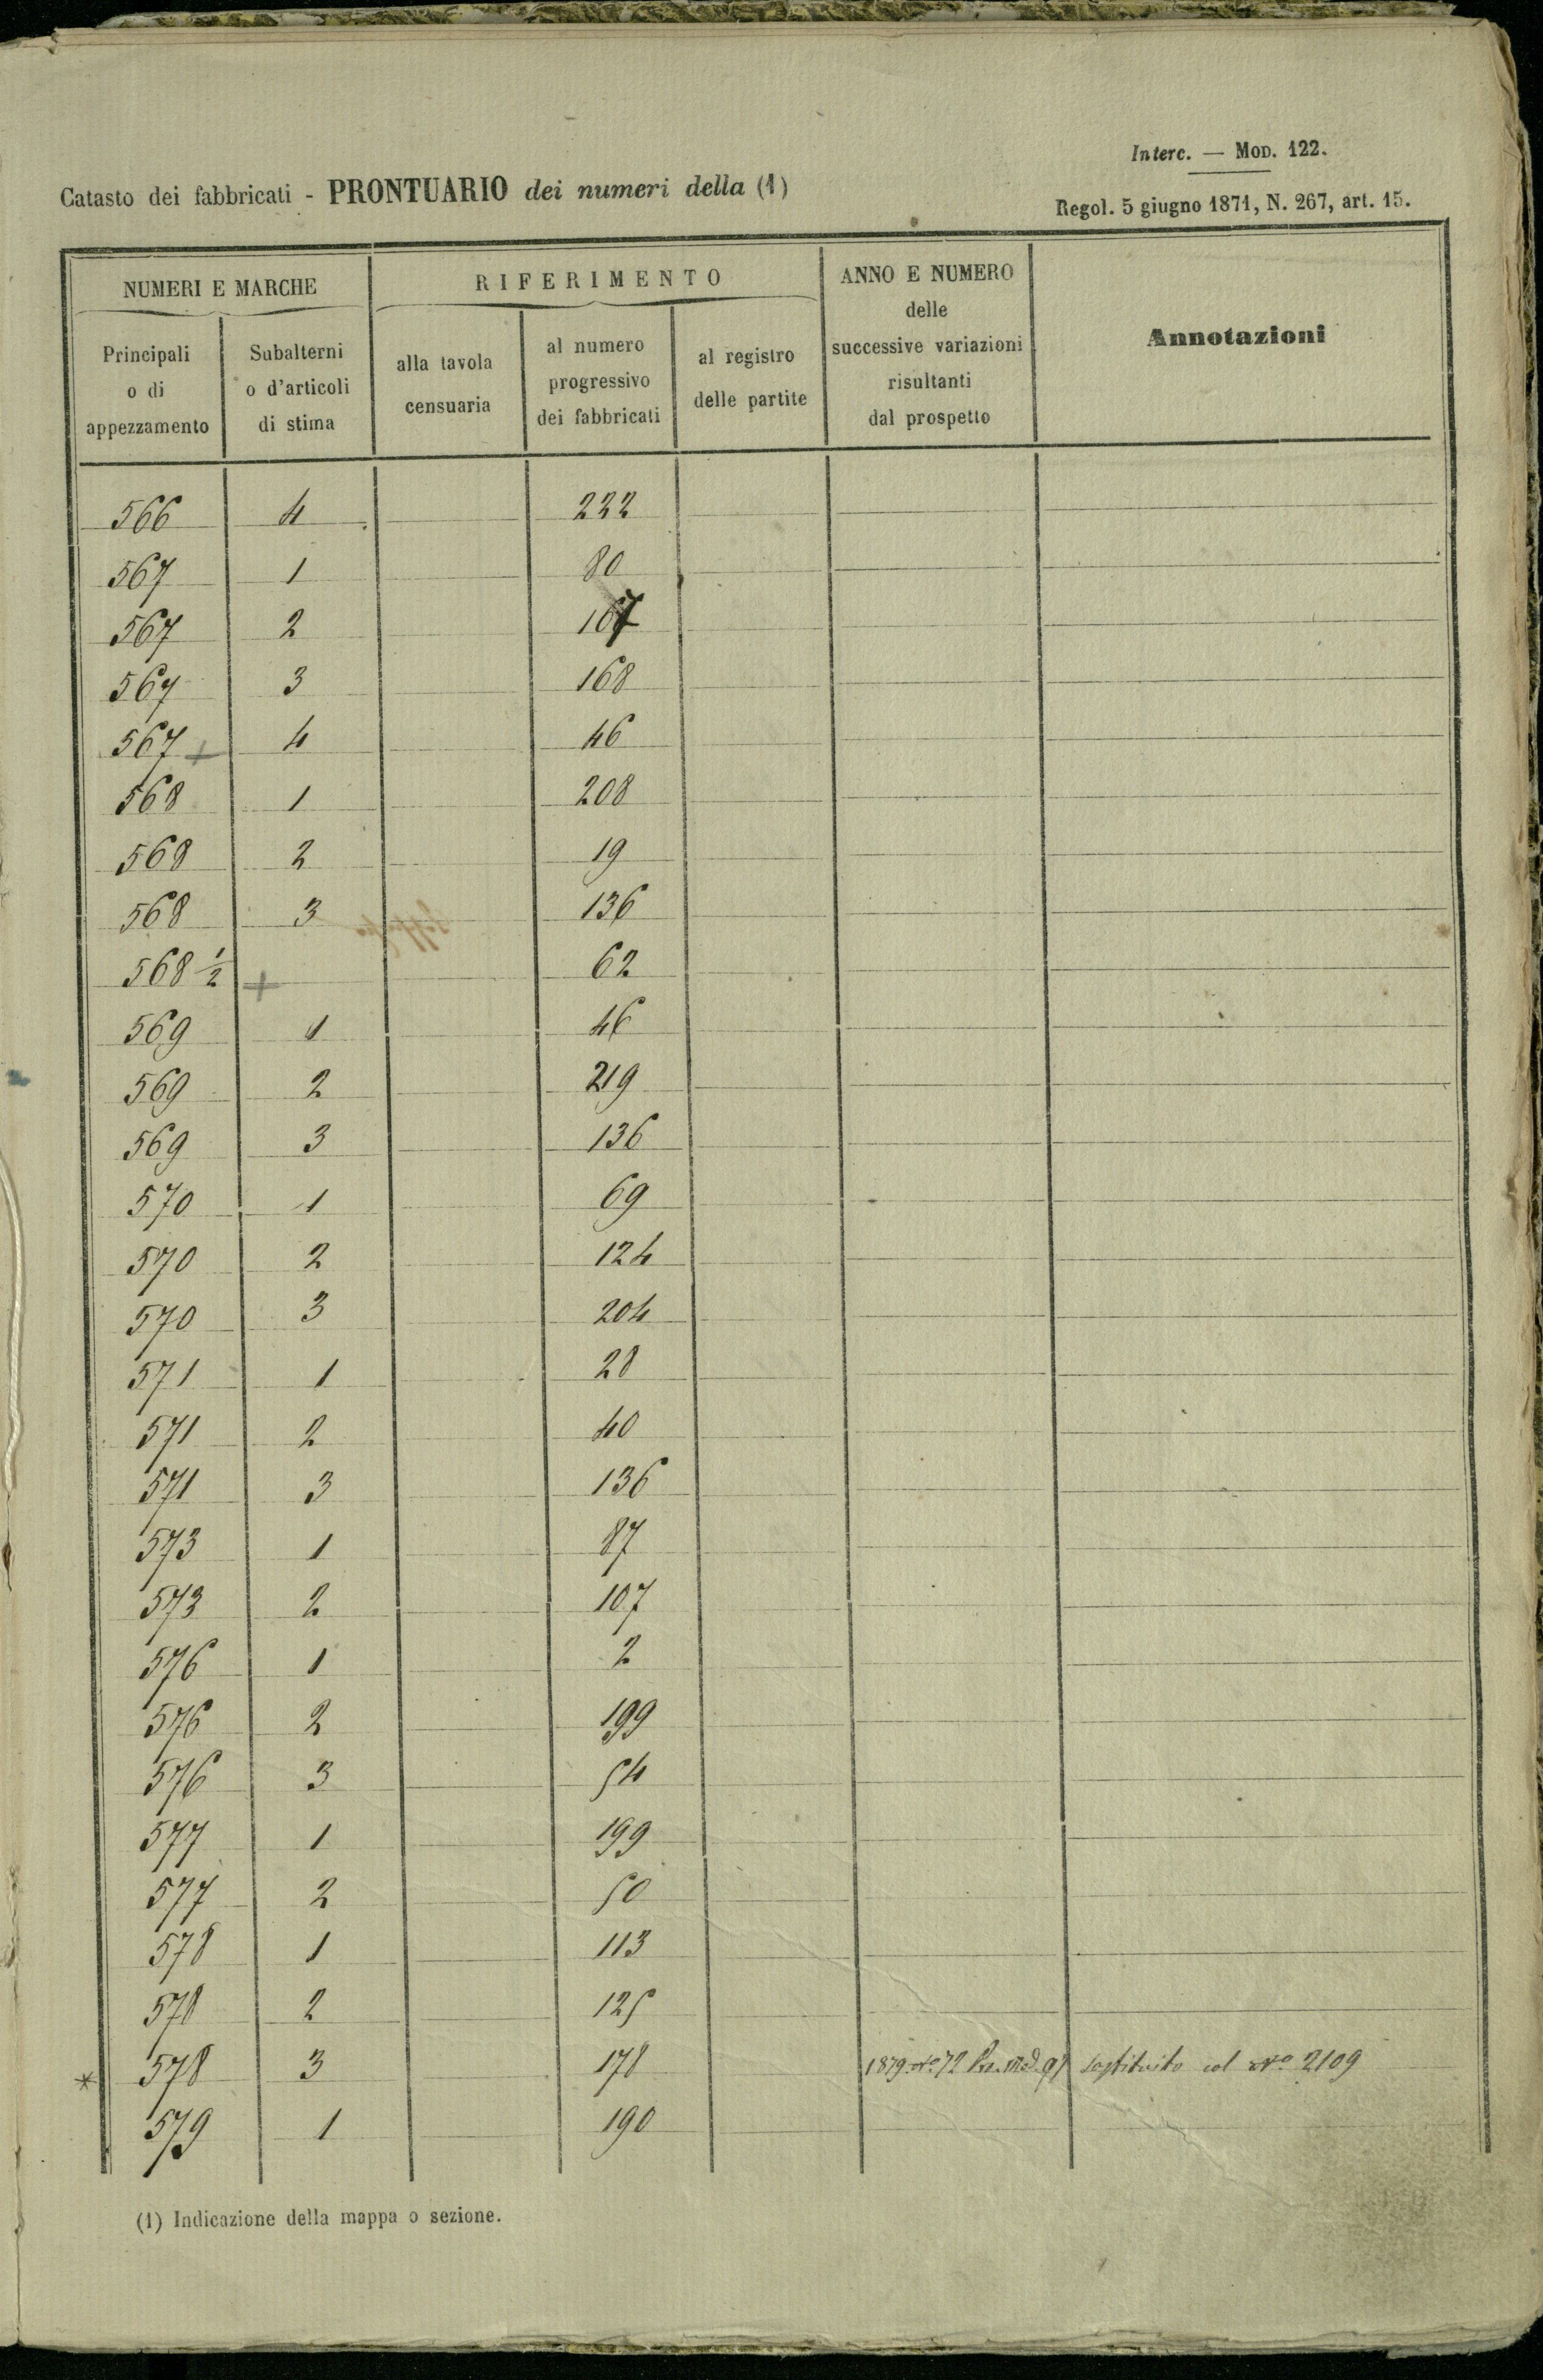 Interc. — Mod. 122.
Catasto dei fabbricati - PRONTUARIO dei numeri della (1)
Regol. 5 giugno 1871, N. 267, art. 15.
NUMERI E MARCHE
RIFERIMENTO
ANNO E NUMERO
delle
successive variazioni
risultanti
dal prospetto
Annotazioni
Principali
o di
appezzamento
Subalterni
o d'articoli
di stima
alla tavola
censuaria
al numero
progressivo
dei fabbricati
al registro
delle partite
566 4 222
567 1 80
567 2 167
567 3 168
567 + 4 46
568 1 208
568 2 19
568 3 136
568 1/2 + 62
569 1 46
569 2 219
569 3 136
570 1 69
570 2 124
570 3 204
571 1 28
571 2 40
571 3 136
573 1 87
573 2 107
576 1 2
576 2 199
576 3 54
577 1 199
577 2 50
578 1 113
578 2 125
* 578 3 178 1879 N° 72 Mod. 97 sostituito col N° 2109
579 1 190
(1) Indicazione della mappa o sezione.